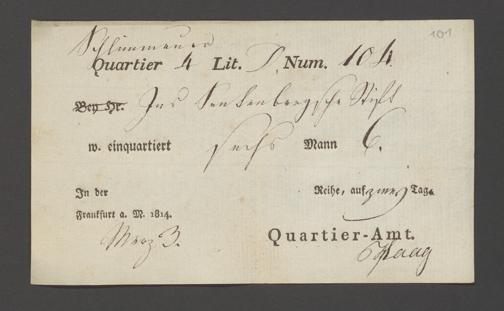 101
Quartier 4 Lit. D. Num. 104.
Bey Hr. Ins Senkenbergsche Stift
w. einquartiert sechs Mann 6.
In der Reihe, auf zwey Tage
Frankfurt a. M. 1814.
Merz 3.
Quartier-Amt.